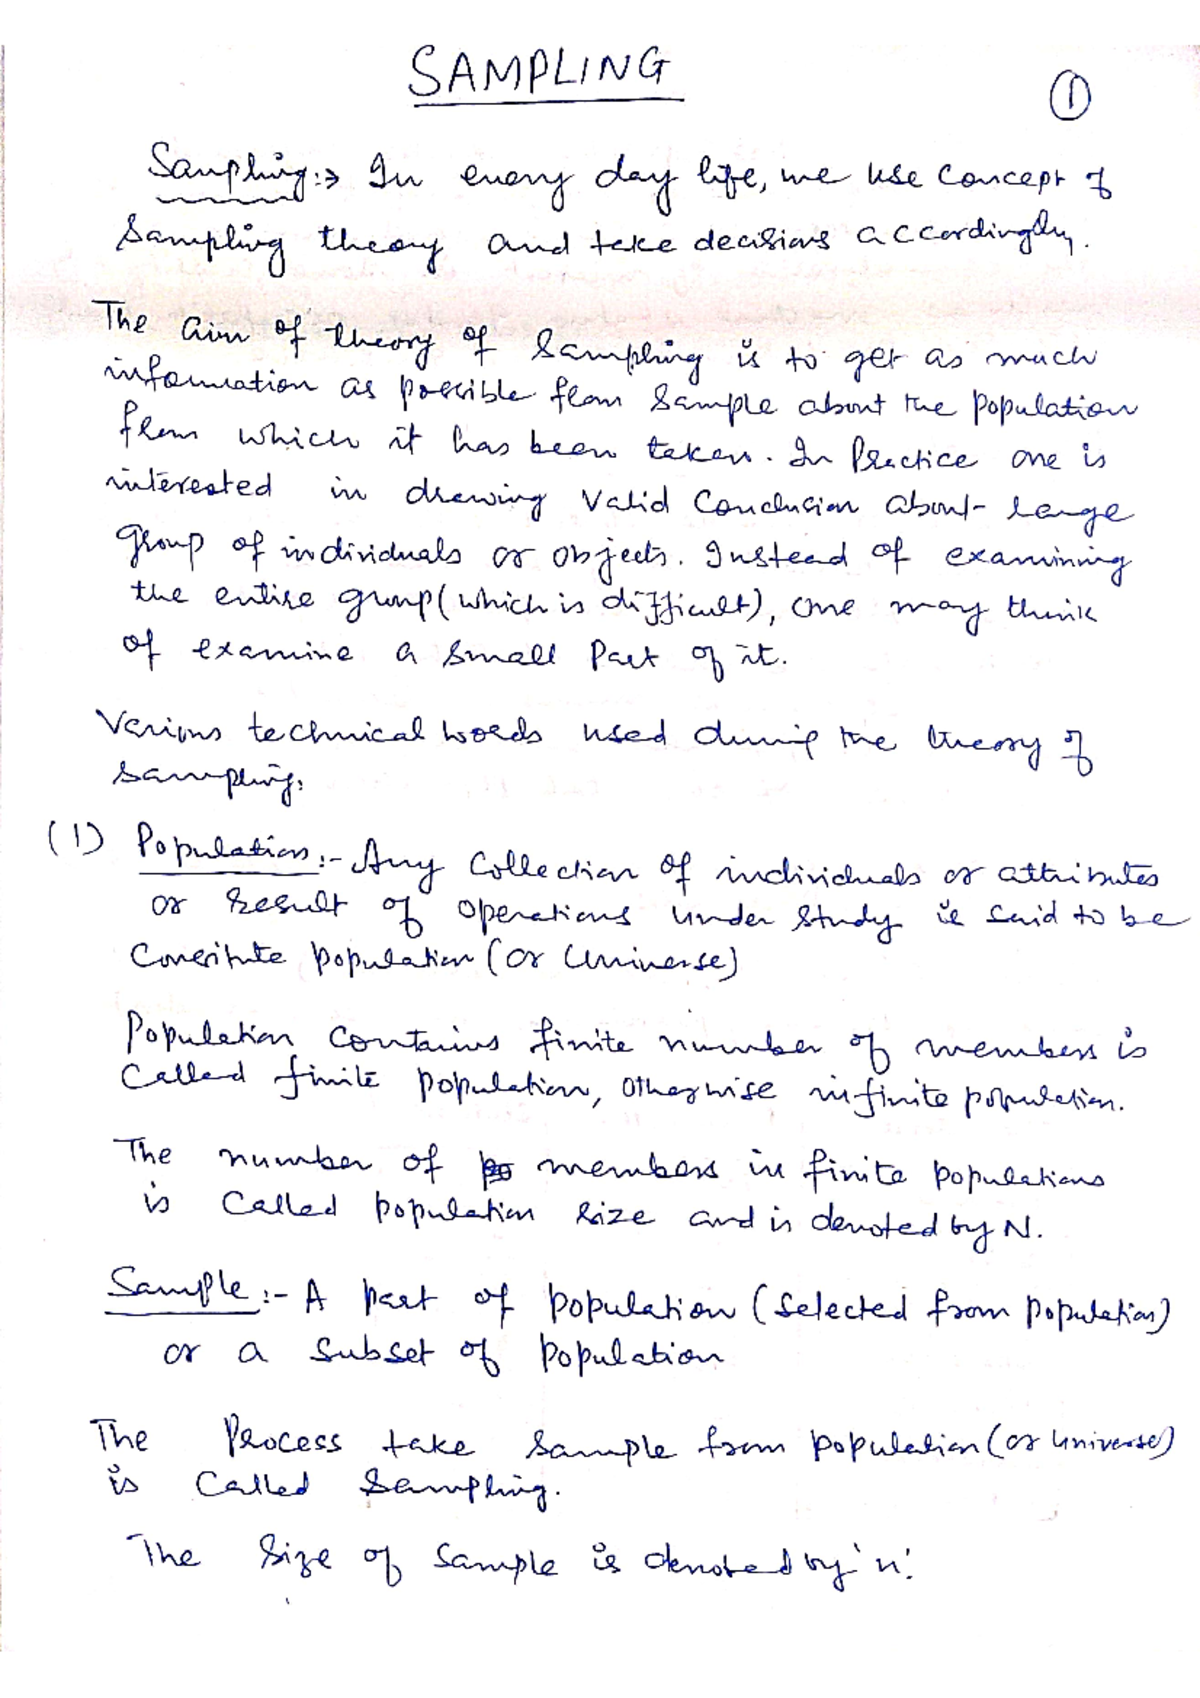 SAMPLING
1
Sampling:→ In every day life, we use concept of
Sampling theory and take decisions accordingly.
The aim of theory of Sampling is to get as much
information as possible from Sample about the population
from which it has been taken. In Practice one is
interested in drawing valid Conclusion about large
group of individuals or objects. Instead of examining
the entire group (which is difficult), one may think
of examine a small Part of it.
Various technical words used during the theory of
sampling.
(1) Population:- Any Collection of individuals or attributes
or Result of operations under study is said to be
Constitute population (or Universe)
Population contains finite number of members is
Called finite population, otherwise infinite population.
The number of members in finite populations
is Called population size and is denoted by N.
Sample:- A Part of population (Selected from population)
or a subset of population
The Process take Sample from population (or Universe)
is Called Sampling.
The Size of Sample is denoted by 'n'.